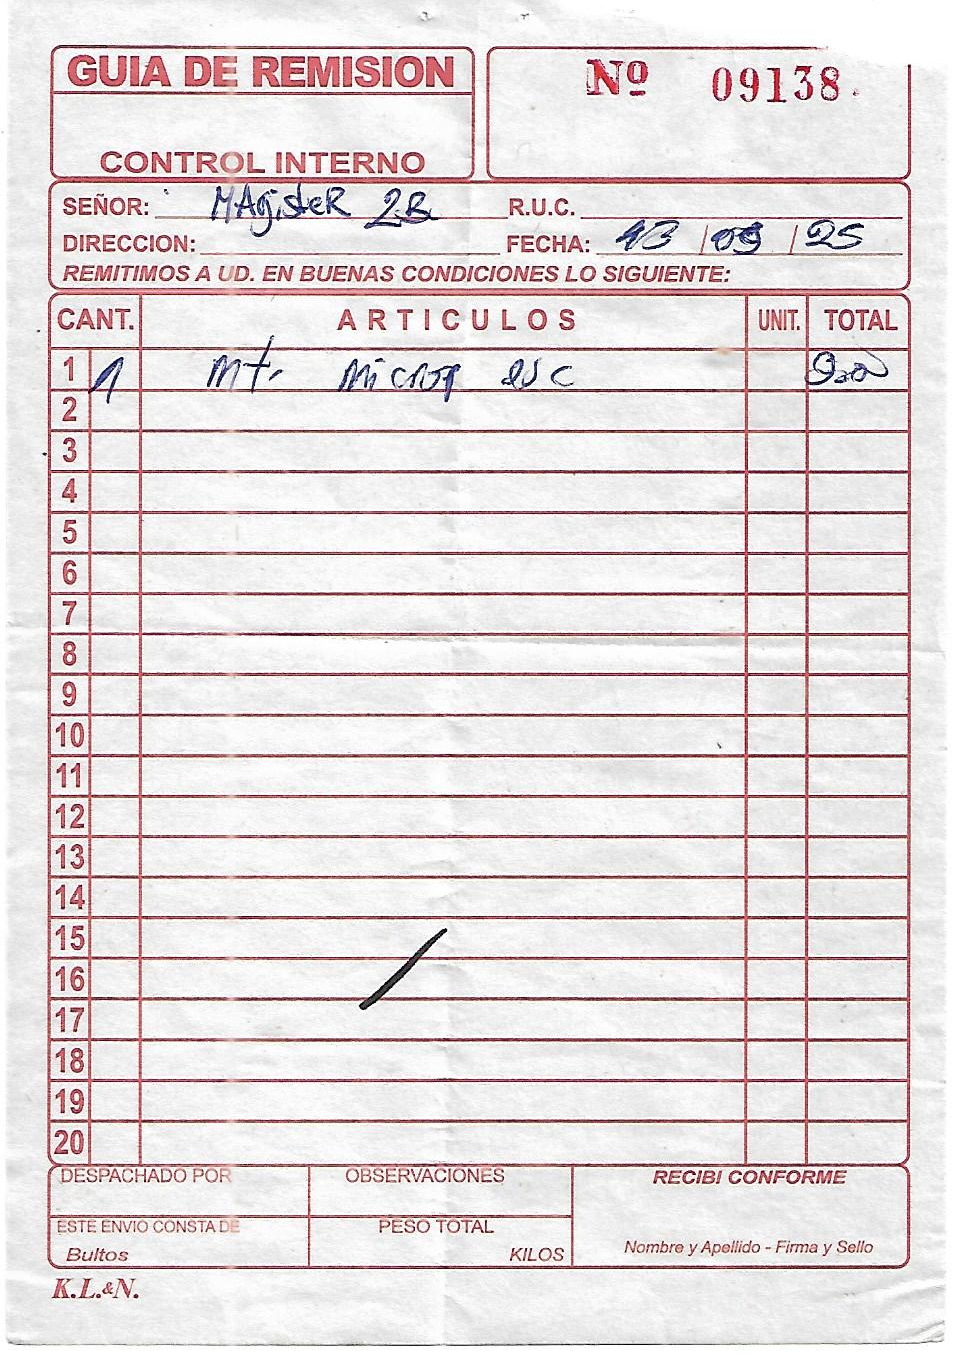 GUIA DE REMISION
CONTROL INTERNO
Nº 09138
SEÑOR: MAgisteR 2.B. R.U.C.
DIRECCION: FECHA: 13 / 09 / 25
REMITIMOS A UD. EN BUENAS CONDICIONES LO SIGUIENTE:
CANT. ARTICULOS UNIT. TOTAL
1 1 Mt. Microp 9.00
2
3
4
5
6
7
8
9
10
11
12
13
14
15
16
17
18
19
20
DESPACHADO POR OBSERVACIONES RECIBI CONFORME
ESTE ENVIO CONSTA DE PESO TOTAL
Bultos KILOS Nombre y Apellido - Firma y Sello
K.L.&N.